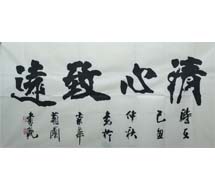 清心致遠
時在
己丑
仲秋
書於
京華